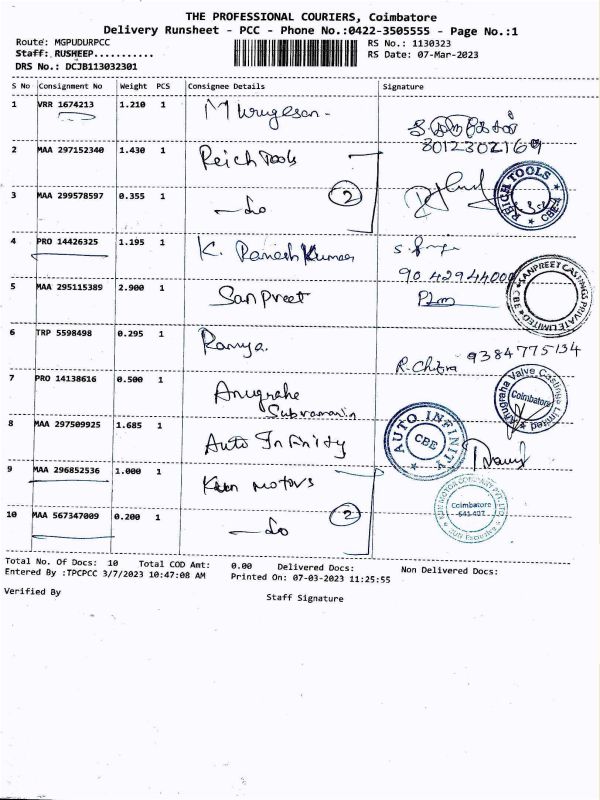 THE PROFESSIONAL COURIERS, Coimbatore
Delivery Runsheet - PCC - Phone No.:0422-3505555 - Page No.:1
Route: MGPUDURPCC
RS No.: 1130323
Staff: RUSHEEP...........
RS Date: 07-Mar-2023
DRS No.: DCJB113032301
S No Consignment No Weight PCS Consignee Details Signature
1 VRR 1674213 1.210 1 Murugesan-
8012302169
2 MAA 297152340 1.430 1 Reich Tools
REICH TOOLS CBE-4
3 MAA 299578597 0.355 1 —do 2
4 PRO 14426325 1.195 1 K. Ramesh Kumar
9042944000
5 MAA 295115389 2.900 1 SanPreet
SANPREET CASTINGS PRIVATE LIMITED
6 TRP 5598498 0.295 1 Ramya.
R. Chitra 9384775134
7 PRO 14138616 0.500 1 Anugraha
Subramanin
Anugraha Valve Castings Limited Coimbatore
8 MAA 297509925 1.685 1 Auto Infinity
AUTO INFINITY CBE
9 MAA 296852536 1.000 1 Keen Motors
Coimbatore
10 MAA 567347009 0.200 1 —do 2
Total No. Of Docs: 10 Total COD Amt: 0.00 Delivered Docs: Non Delivered Docs:
Entered By :TPCPCC 3/7/2023 10:47:08 AM Printed On: 07-03-2023 11:25:55
Verified By Staff Signature